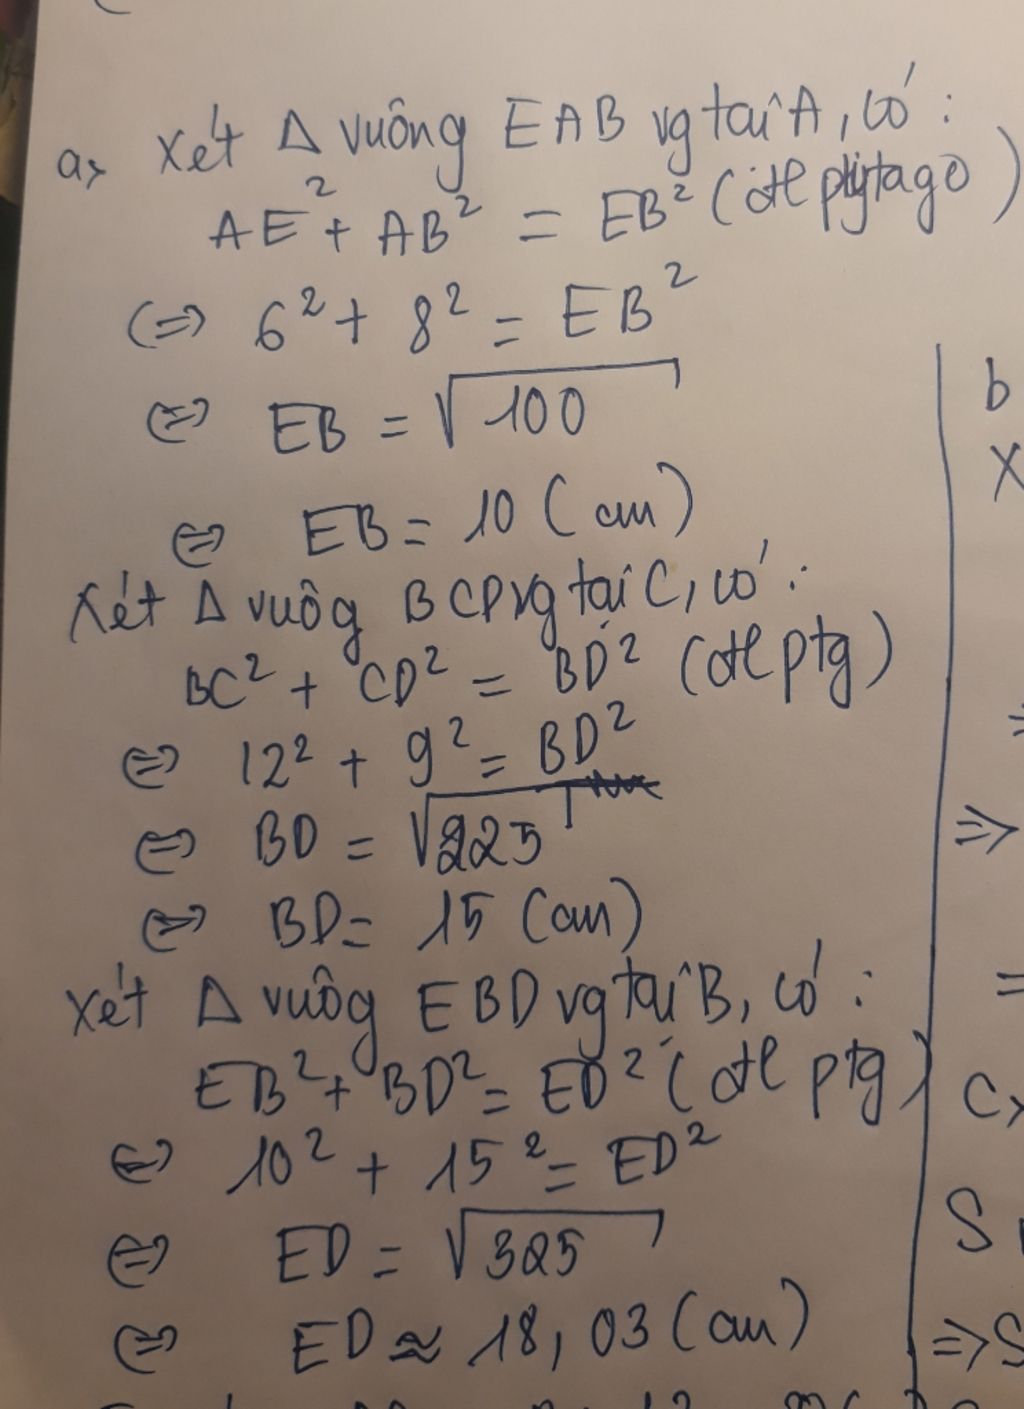 a, Xét Δ vuông EAB vg tại A, có :
AE² + AB² = EB² (đl pytago)
<=> 6² + 8² = EB²
<=> EB = √100
<=> EB = 10 (cm)
Xét Δ vuôg BCD vg tại C, có :
BC² + CD² = BD² (đl ptg)
<=> 12² + 9² = BD²
<=> BD = √225
<=> BD = 15 (cm)
Xét Δ vuôg EBD vg tại B, có :
EB² + BD² = ED² (đl ptg)
<=> 10² + 15² = ED²
<=> ED = √325
<=> ED ≈ 18,03 (cm)
b
X
=>
=
c,
S
=> S